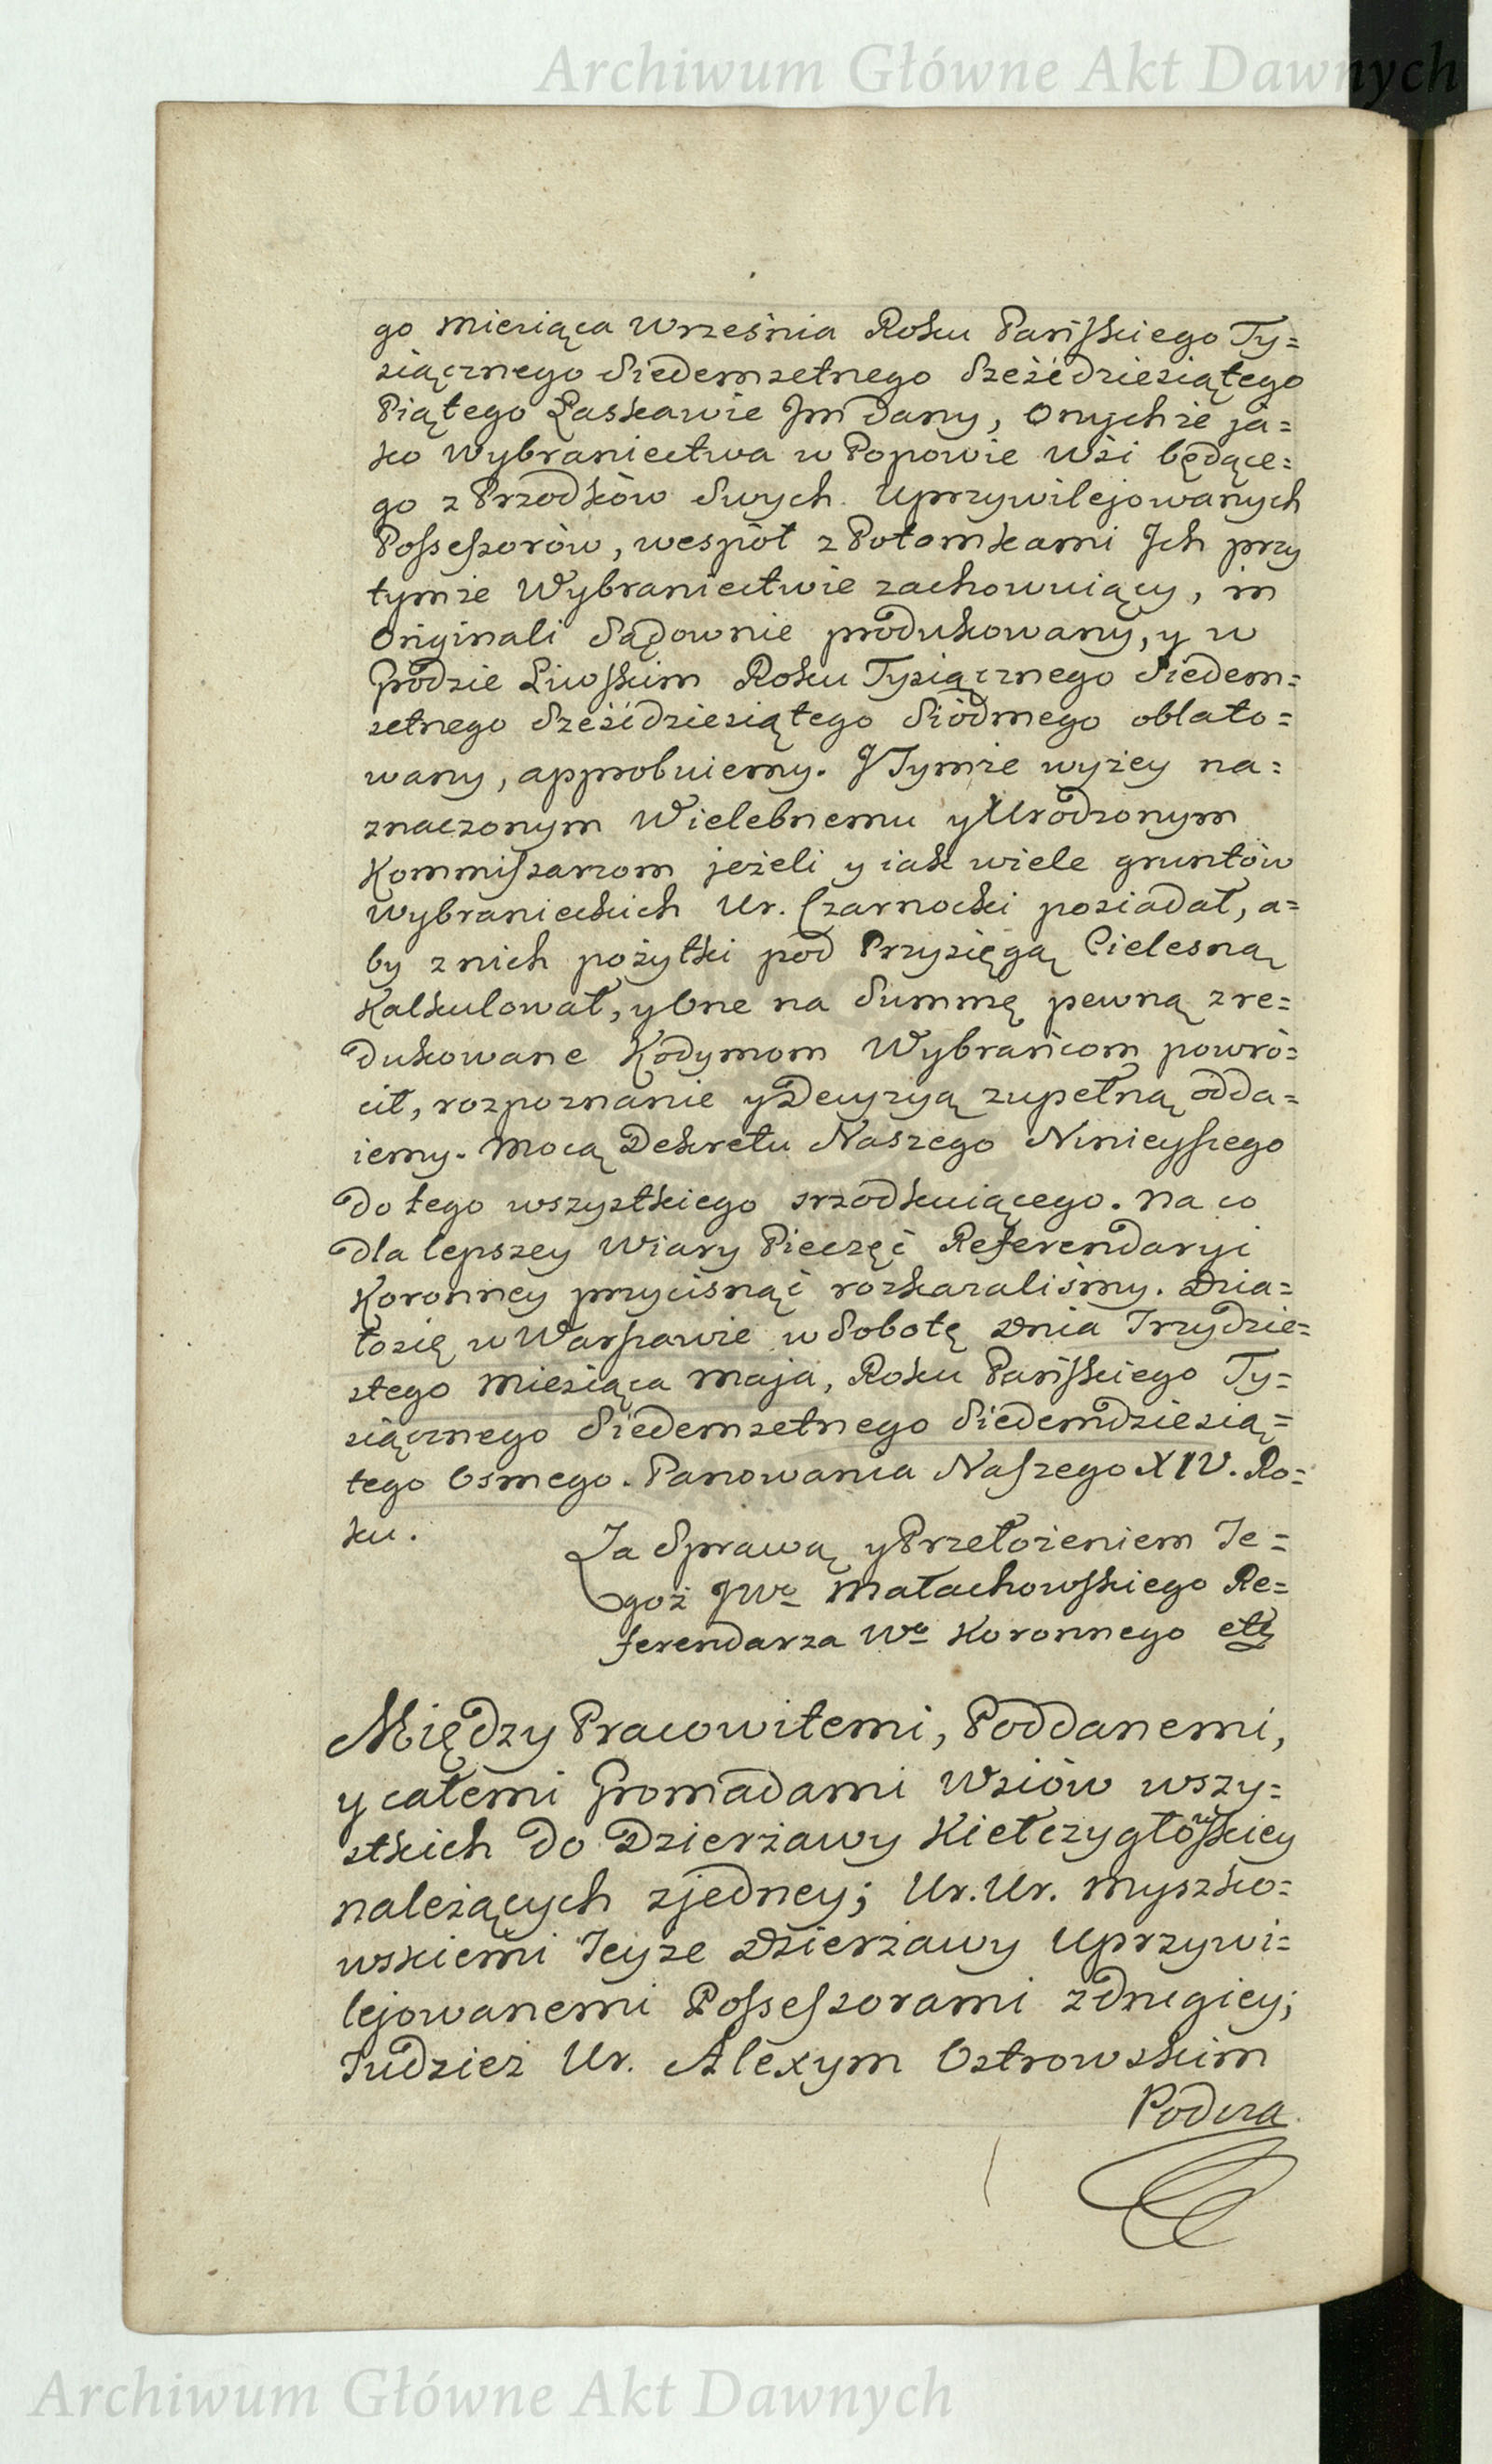 Archiwum Główne Akt Dawnych
go Miesiąca Września Roku Pańskiego Ty=
siącznego Siedemsetnego Sześćdziesiątego
Piątego Łaskawie Im dany, Onychże ja=
ko Wybraniectwa w Popowie Wsi będące=
go z Przodków Swych Uprzywilejowanych
Possessorów, wespół z Potomkami Ich przy
tymże Wybraniectwie zachowuiący, in
Originali Sądownie produkowany, y w
Grodzie Liwskim Roku Tysiącznego Siedem=
setnego Sześćdziesiątego Siódmego oblato=
wany, approbuiemy. I Tymże wyżey na=
znaczonym Wielebnemu y Urodzonym
Kommissarzom jeżeli y iak wiele gruntów
Wybranieckich Ur. Czarnocki posiadał, a=
by z nich pożytki pod Przysięgą Cielesną
Kalkulował, y One na Summę pewną zre=
dukowane Kodymom Wybrańcom powró=
cił, rozpoznanie y Decyzyą zupełną odda=
iemy. Mocą Dekretu Naszego Ninieyszego
do tego wszystkiego srzodkuiącego. Na co
dla lepszey Wiary Pieczęć Referendaryi
Koronney przycisnąć rozkazaliśmy. Dzia=
ło się w Warszawie w Sobotę Dnia Trzydzie=
stego Miesiąca Maja, Roku Pańskiego Ty=
siącznego Siedemsetnego Siedemdziesią=
tego Osmego. Panowania Naszego XIV. Ro=
ku.
Za Sprawą y Przełożeniem Je=
goż JWo Małachowskiego Re=
ferendarza Wo Koronnego etc
Między Pracowitemi, Poddanemi,
y całemi Gromadami Wsiów wszy=
stkich do Dzierżawy Kiełczygłowskiey
należących z jedney; Ur. Ur. Myszko=
wskiemi Teyże Dzierżawy Uprzywi=
lejowanemi Possessorami z drugiey;
Tudzież Ur. Alexym Ostrowskim
Podcza
Archiwum Główne Akt Dawnych